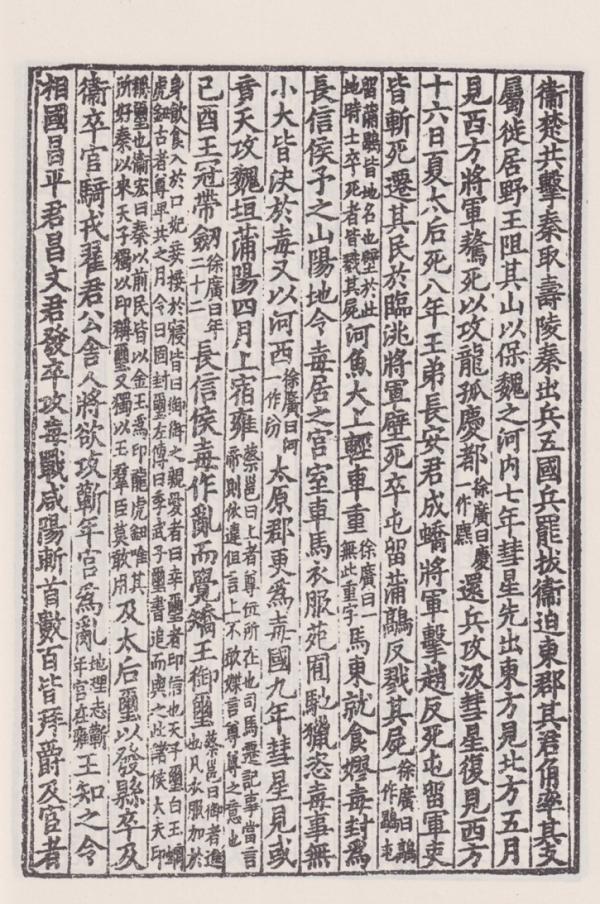 衞楚共擊秦取壽陵秦出兵五國兵罷拔衞迫東郡其君角率其支
屬徙居野王阻其山以保魏之河内七年彗星先出東方見北方五月
見西方將軍驁死以攻龍孤慶都徐廣曰慶一作麃還兵攻汲彗星復見西方
十六日夏太后死八年王弟長安君成蟜將軍擊趙反死屯留軍吏
皆斬死遷其民於臨洮將軍壁死卒屯留蒲鶮反戮其屍徐廣曰鶮一作鶡屯
留蒲鶮皆地名也壁於此地時士卒死者皆戮其屍河魚大上輕車重徐廣曰一無此重字馬東就食嫪毐封爲
長信侯予之山陽地令毐居之宫室車馬衣服苑囿馳獵恣毐事無
小大皆決於毐又以河西徐廣曰河一作汾太原郡更爲毐國九年彗星見或
竟天攻魏垣蒲陽四月上宿雍蔡邕曰上者尊位所在也司馬遷記事當言帝則依違但言上不敢媟言尊尊之意也
己酉王冠帶劒徐廣曰年二十二長信侯毐作亂而覺矯王御璽蔡邕曰御者進也凡衣服加於
身飲食入於口妃妾接於寢皆曰御御之親愛者曰幸璽者印信也天子璽白玉螭虎鈕古者尊卑共之月令曰固封璽左傳曰季武子璽書追而與之此諸侯大夫印
稱璽也衞宏曰秦以前民皆以金玉爲印龍虎鈕唯其所好秦以來天子獨以印稱璽又獨以玉羣臣莫敢用及太后璽以發縣卒及
衞卒官騎戎翟君公舍人將欲攻蘄年宫爲亂地理志蘄年宫在雍王知之令
相國昌平君昌文君發卒攻毐戰咸陽斬首數百皆拜爵及宦者